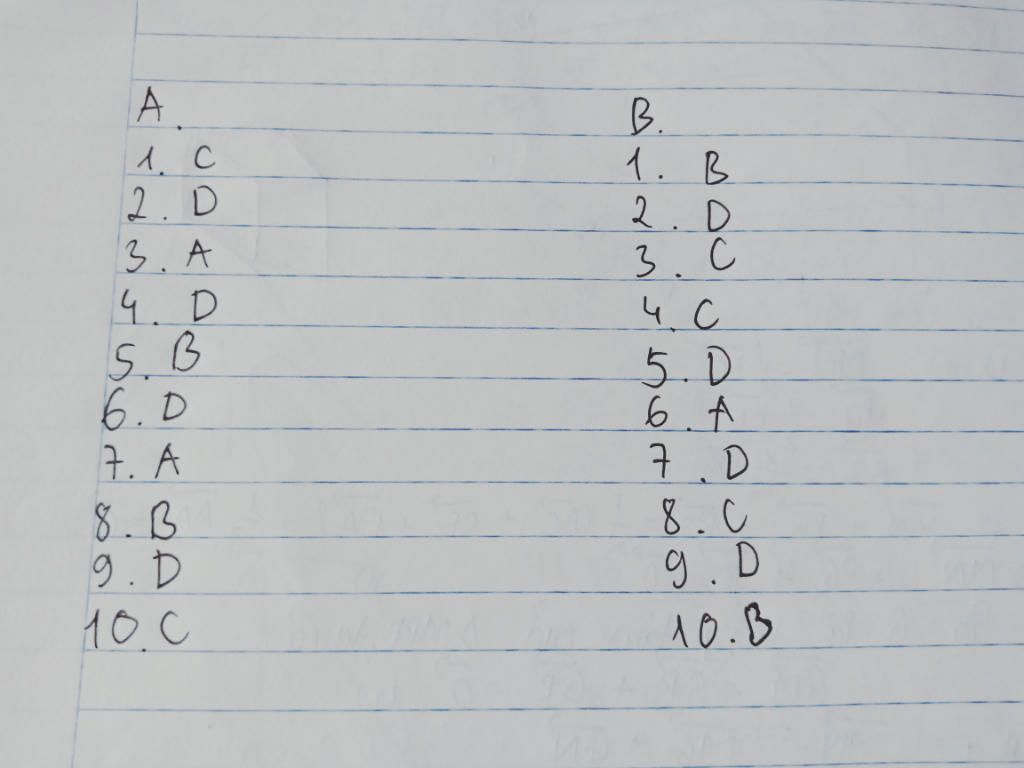 A.
1. C
2. D
3. A
4. D
5. B
6. D
7. A
8. B
9. D
10. C
B.
1. B
2. D
3. C
4. C
5. D
6. A
7. D
8. C
9. D
10. B